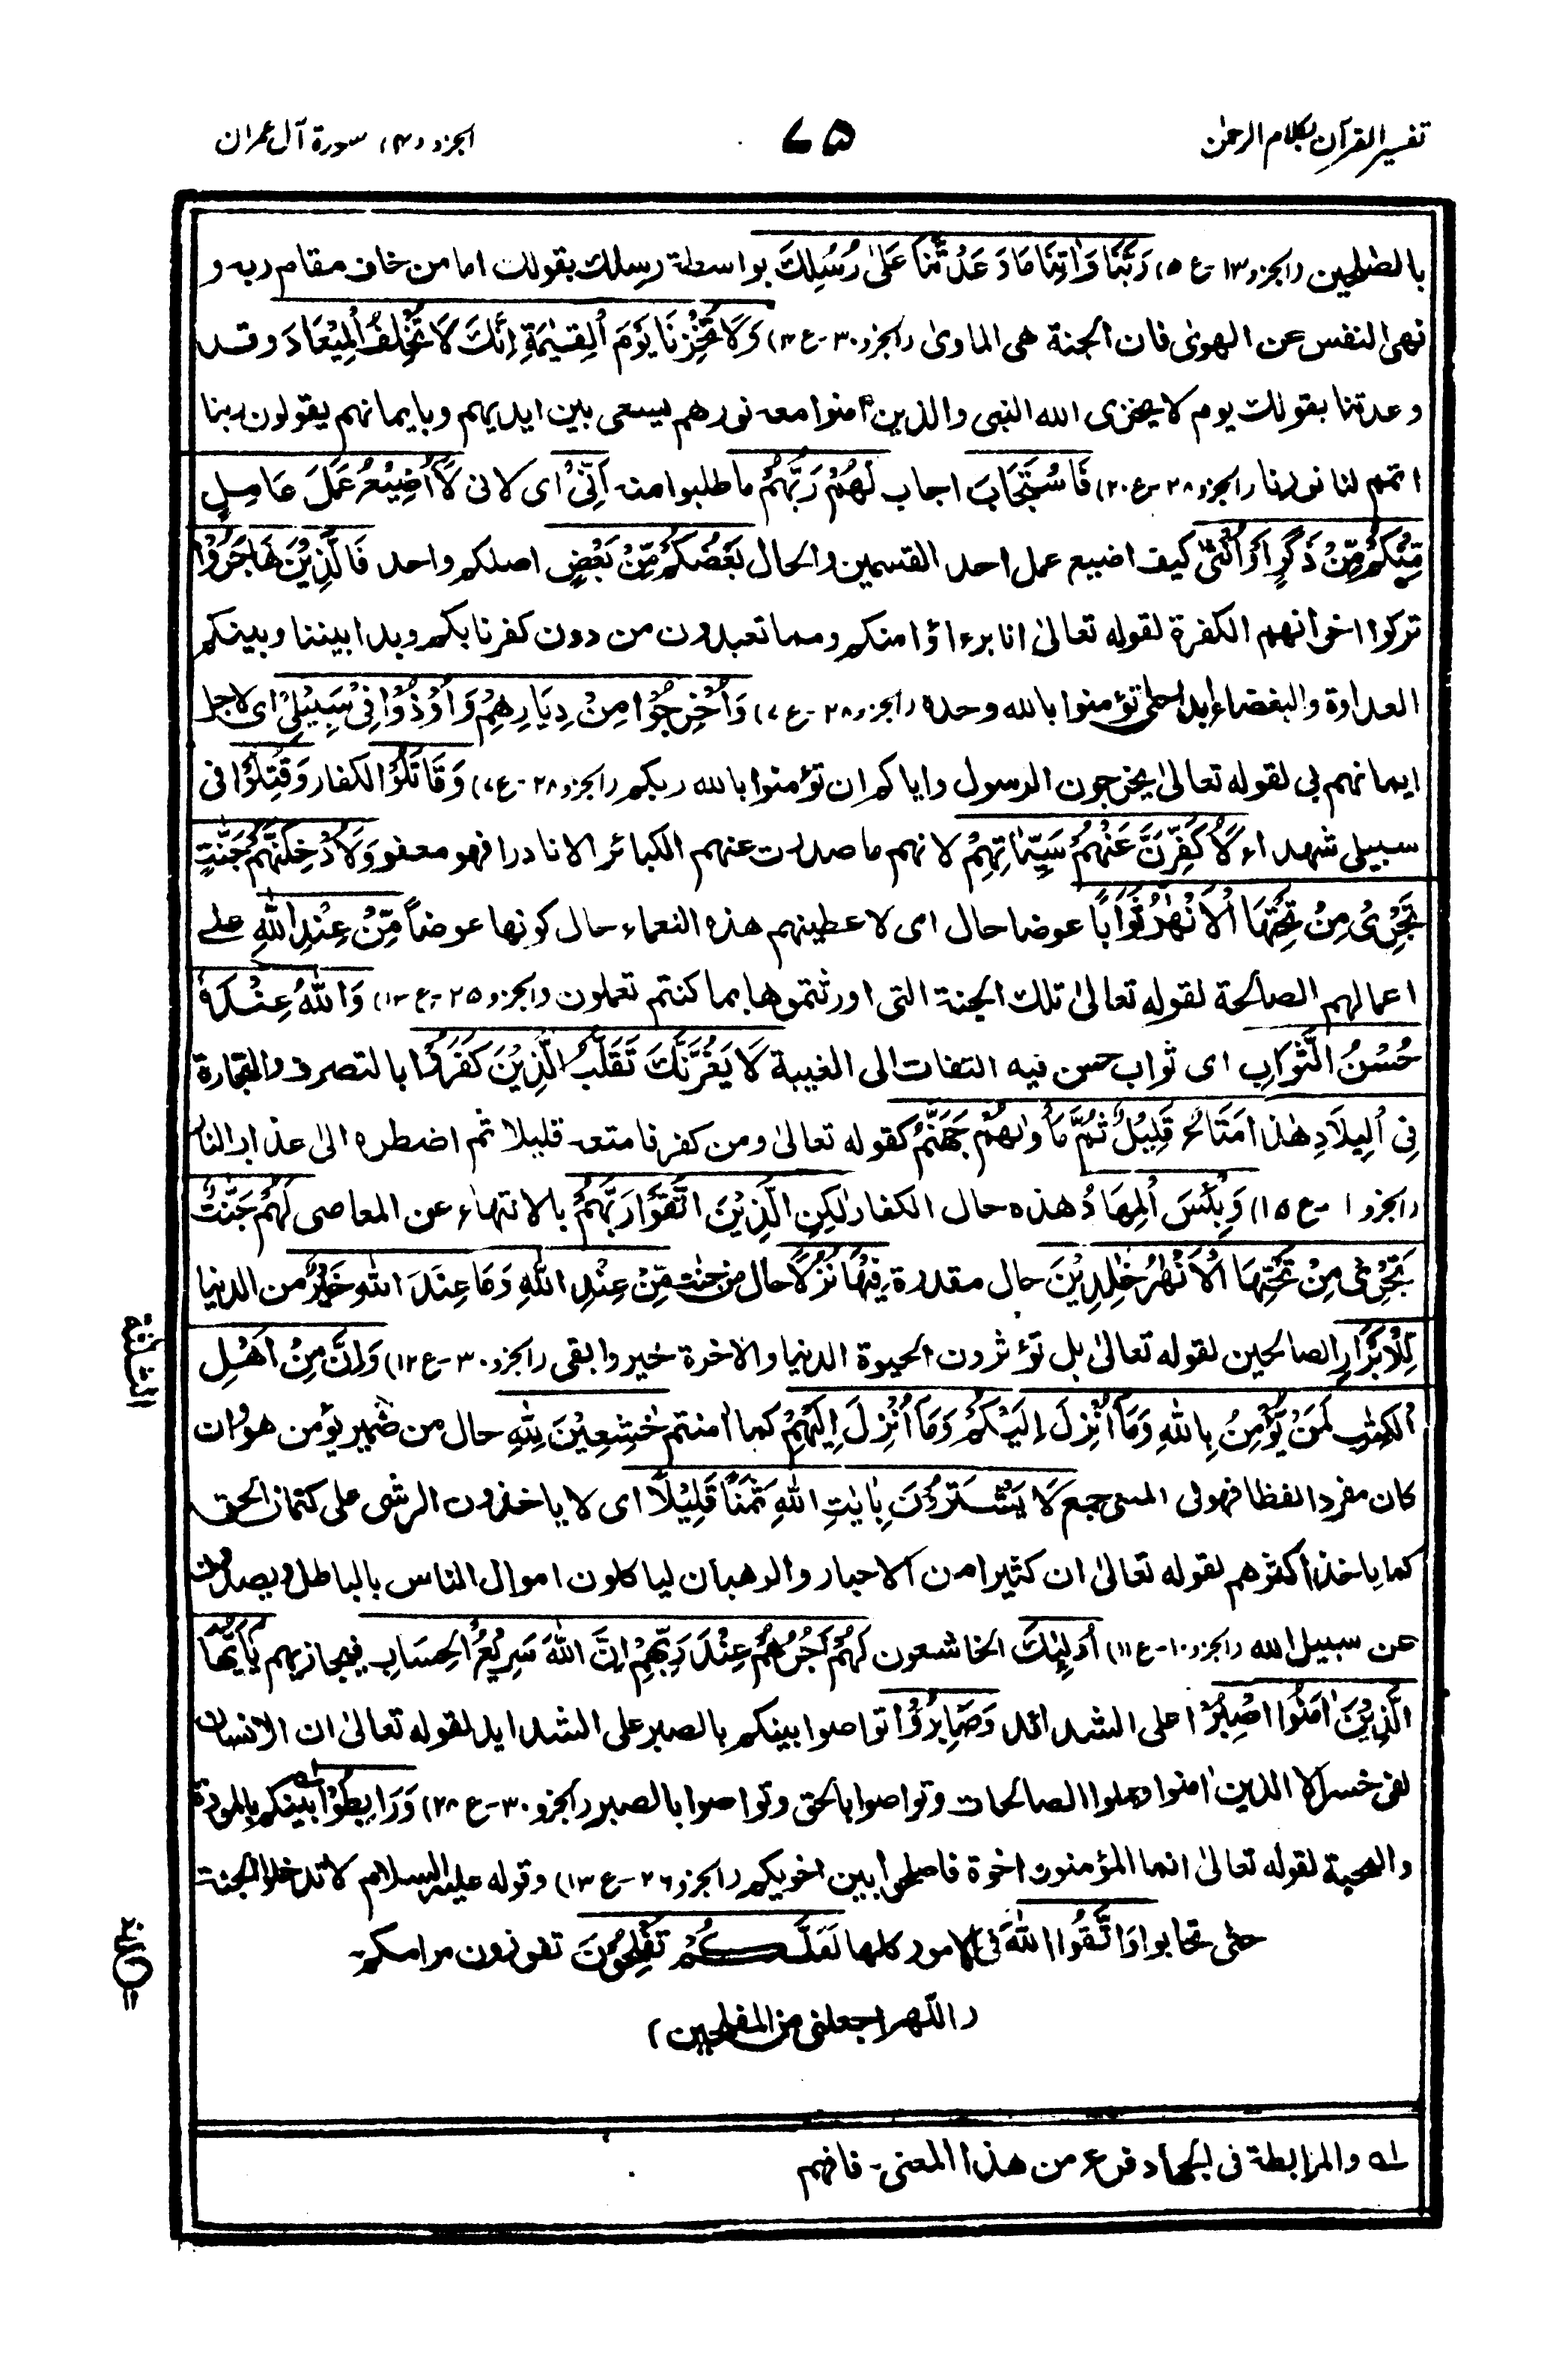 تفسير القرآن بكلام الرحمٰن
٧٥
الجزو (٤) سورة آل عمران
بالصٰلحين (الجزو ١٣-ع ٥) رَبَّنَا وَاٰتِنَا مَا وَعَدْتَّنَا عَلٰى رُسُلِكَ بواسطة رسلك بقولك اما من خاف مقام ربه و
نهى النفس عن الهوىٰ فان الجنة هى الماوىٰ (الجزو ٣٠-ع ٣) وَلَا تُخْزِنَا يَوْمَ الْقِيٰمَةِ اِنَّكَ لَا تُخْلِفُ الْمِيْعَادَ وقد
وعدتنا بقولك يوم لا يخزى الله النبى والذين اٰمنوا معه نورهم يسعى بين ايديهم وبايمانهم يقولون ربنا
اتمم لنا نورنا (الجزو ٢٨-ع ٢٠) فَاسْتَجَابَ اجاب لَهُمْ رَبُّهُمْ ما طلبوا منه اَنِّىْ اى لانى لَآ اُضِيْعُ عَمَلَ عَامِلٍ
مِّنْكُمْ مِّنْ ذَكَرٍ اَوْ اُنْثٰى كيف اضيع عمل احد القسمين والحال بَعْضُكُمْ مِّنْ بَعْضٍ اصلكم واحد فَالَّذِيْنَ هَاجَرُوْا
تركوا اخوانهم الكفرة لقوله تعالىٰ انا برءاؤا منكم ومما تعبدون من دون كفرنا بكم وبدا بيننا وبينكم
العداوة والبغضاء ابدا حتى تؤمنوا بالله وحده (الجزو ٢٨-ع ٧) وَاُخْرِجُوْا مِنْ دِيَارِهِمْ وَاُوْذُوْا فِىْ سَبِيْلِىْ اى لاجل
ايمانهم بى لقوله تعالىٰ يخرجون الرسول واياكم ان تؤمنوا بالله ربكم (الجزو ٢٨-ع ٧) وَقَاتَلُوْا الكفار وَقُتِلُوْا فى
سبيلى شهداء لَاُكَفِّرَنَّ عَنْهُمْ سَيِّاٰتِهِمْ لانهم ما صدرت عنهم الكبائر الا نادرا فهو معفو وَلَاُدْخِلَنَّهُمْ جَنّٰتٍ
تَجْرِىْ مِنْ تَحْتِهَا الْاَنْهٰرُ ثَوَابًا عوضا حال اى لاعطينهم هذه النعماء حال كونها عوضاً مِّنْ عِنْدِ اللّٰهِ على
اعمالهم الصالحة لقوله تعالىٰ تلك الجنة التى اورثتموها بما كنتم تعملون (الجزو ٢٥-ع ١٣) وَاللّٰهُ عِنْدَهٗ
حُسْنُ الثَّوَابِ اى ثواب حسن فيه التفات الى الغيبة لَا يَغُرَّنَّكَ تَقَلُّبُ الَّذِيْنَ كَفَرُوْا بالتصرف والتجارة
فِى الْبِلَادِ هٰذا مَتَاعٌ قَلِيْلٌ ثُمَّ مَاْوٰىهُمْ جَهَنَّمُ كقوله تعالىٰ ومن كفر فامتعه قليلا ثم اضطره الىٰ عذاب النار
(الجزو ١-ع ١٥) وَبِئْسَ الْمِهَادُ هذه حال الكفار لٰكِنِ الَّذِيْنَ اتَّقَوْا رَبَّهُمْ بالانتهاء عن المعاصى لَهُمْ جَنّٰتٌ
تَجْرِىْ مِنْ تَحْتِهَا الْاَنْهٰرُ خٰلِدِيْنَ حال مقدرة فِيْهَا نُزُلًا حال من جنٰت مِّنْ عِنْدِ اللّٰهِ وَمَا عِنْدَ اللّٰهِ خَيْرٌ من الدنيا
لِّلْاَبْرَارِ الصالحين لقوله تعالىٰ بل تؤثرون الحيوة الدنيا والاخرة خير وابقى (الجزو ٣٠-ع ١٢) وَاِنَّ مِنْ اَهْلِ
الْكِتٰبِ لَمَنْ يُّؤْمِنُ بِاللّٰهِ وَمَآ اُنْزِلَ اِلَيْكُمْ وَمَآ اُنْزِلَ اِلَيْهِمْ كما اٰمنتم خٰشِعِيْنَ لِلّٰهِ حال من ضمير يؤمن هو وان
كان مفردا لفظا فهو فى المعنى جمع لَا يَشْتَرُوْنَ بِاٰيٰتِ اللّٰهِ ثَمَنًا قَلِيْلًا اى لا ياخذون الرشى على كتمان الحق
كما ياخذ اكثرهم لقوله تعالىٰ ان كثيرا من الاحبار والرهبان لياكلون اموال الناس بالباطل ويصدون
عن سبيل الله (الجزو ١٠-ع ١١) اُولٰٓئِكَ الخاشعون لَهُمْ اَجْرُهُمْ عِنْدَ رَبِّهِمْ اِنَّ اللّٰهَ سَرِيْعُ الْحِسَابِ فيجازيهم يٰٓاَيُّهَا
الَّذِيْنَ اٰمَنُوا اصْبِرُوْا على الشدائد وَصَابِرُوْا تواصوا بينكم بالصبر على الشدايد لقوله تعالىٰ ان الانسان
لفى خسر الا الذين اٰمنوا وعملوا الصالحات وتواصوا بالحق وتواصوا بالصبر (الجزو ٣٠-ع ٢٨) وَرَابِطُوْا ؎١ بينكم بالمودة
والمحبة لقوله تعالىٰ انما المؤمنون اخوة فاصلحوا بين اخويكم (الجزو ٢٦-ع ١٣) وقوله عليه السلام لا تدخلوا الجنة
حتى تحابوا وَاتَّقُوا اللّٰهَ فى الامور كلها لَعَلَّكُمْ تُفْلِحُوْنَ تفوزون مرامكم
(اللّٰهم اجعلنى من المفلحين)
؎١ والمرابطة فى الجهاد فرع من هذا المعنى - فافهم